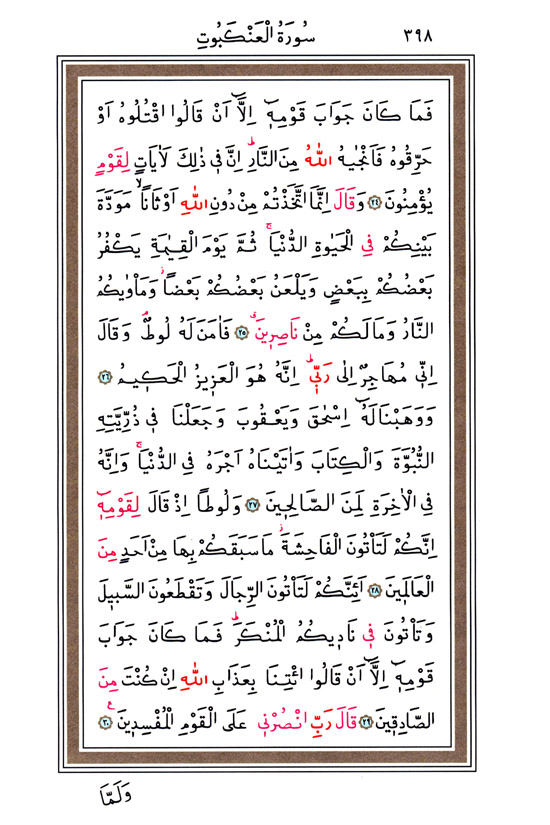 سُورَةُ الْعَنْكَبُوتِ ٣٩٨
فَمَا كَانَ جَوَابَ قَوْمِه۪ٓ اِلَّٓا اَنْ قَالُوا اقْتُلُوهُ اَوْ
حَرِّقُوهُ فَاَنْجٰيهُ اللّٰهُ مِنَ النَّارِۜ اِنَّ ف۪ي ذٰلِكَ لَاٰيَاتٍ لِقَوْمٍ
يُؤْمِنُونَ ﴿٢٤﴾ وَقَالَ اِنَّمَا اتَّخَذْتُمْ مِنْ دُونِ اللّٰهِ اَوْثَاناًۙ مَوَدَّةَ
بَيْنِكُمْ فِي الْحَيٰوةِ الدُّنْيَاۚ ثُمَّ يَوْمَ الْقِيٰمَةِ يَكْفُرُ
بَعْضُكُمْ بِبَعْضٍ وَيَلْعَنُ بَعْضُكُمْ بَعْضاًۘ وَمَأْوٰيكُمُ
النَّارُ وَمَا لَكُمْ مِنْ نَاصِر۪ينَۗ ﴿٢٥﴾ فَاٰمَنَ لَهُ لُوطٌۢ وَقَالَ
اِنّ۪ي مُهَاجِرٌ اِلٰى رَبّ۪يۜ اِنَّهُ هُوَ الْعَز۪يزُ الْحَك۪يمُ ﴿٢٦﴾
وَوَهَبْنَا لَهُٓ اِسْحٰقَ وَيَعْقُوبَ وَجَعَلْنَا ف۪ي ذُرِّيَّتِهِ
النُّبُوَّةَ وَالْكِتَابَ وَاٰتَيْنَاهُ اَجْرَهُ فِي الدُّنْيَاۚ وَاِنَّهُ
فِي الْاٰخِرَةِ لَمِنَ الصَّالِح۪ينَ ﴿٢٧﴾ وَلُوطاً اِذْ قَالَ لِقَوْمِه۪ٓ
اِنَّكُمْ لَتَأْتُونَ الْفَاحِشَةَۘ مَا سَبَقَكُمْ بِهَا مِنْ اَحَدٍ مِنَ
الْعَالَم۪ينَ ﴿٢٨﴾ اَئِنَّكُمْ لَتَأْتُونَ الرِّجَالَ وَتَقْطَعُونَ السَّب۪يلَ
وَتَأْتُونَ ف۪ي نَاد۪يكُمُ الْمُنْكَرَۜ فَمَا كَانَ جَوَابَ
قَوْمِه۪ٓ اِلَّٓا اَنْ قَالُوا ائْتِنَا بِعَذَابِ اللّٰهِ اِنْ كُنْتَ مِنَ
الصَّادِق۪ينَ ﴿٢٩﴾ قَالَ رَبِّ انْصُرْن۪ي عَلَى الْقَوْمِ الْمُفْسِد۪ينَ۟ ﴿٣٠﴾
وَلَمَّا